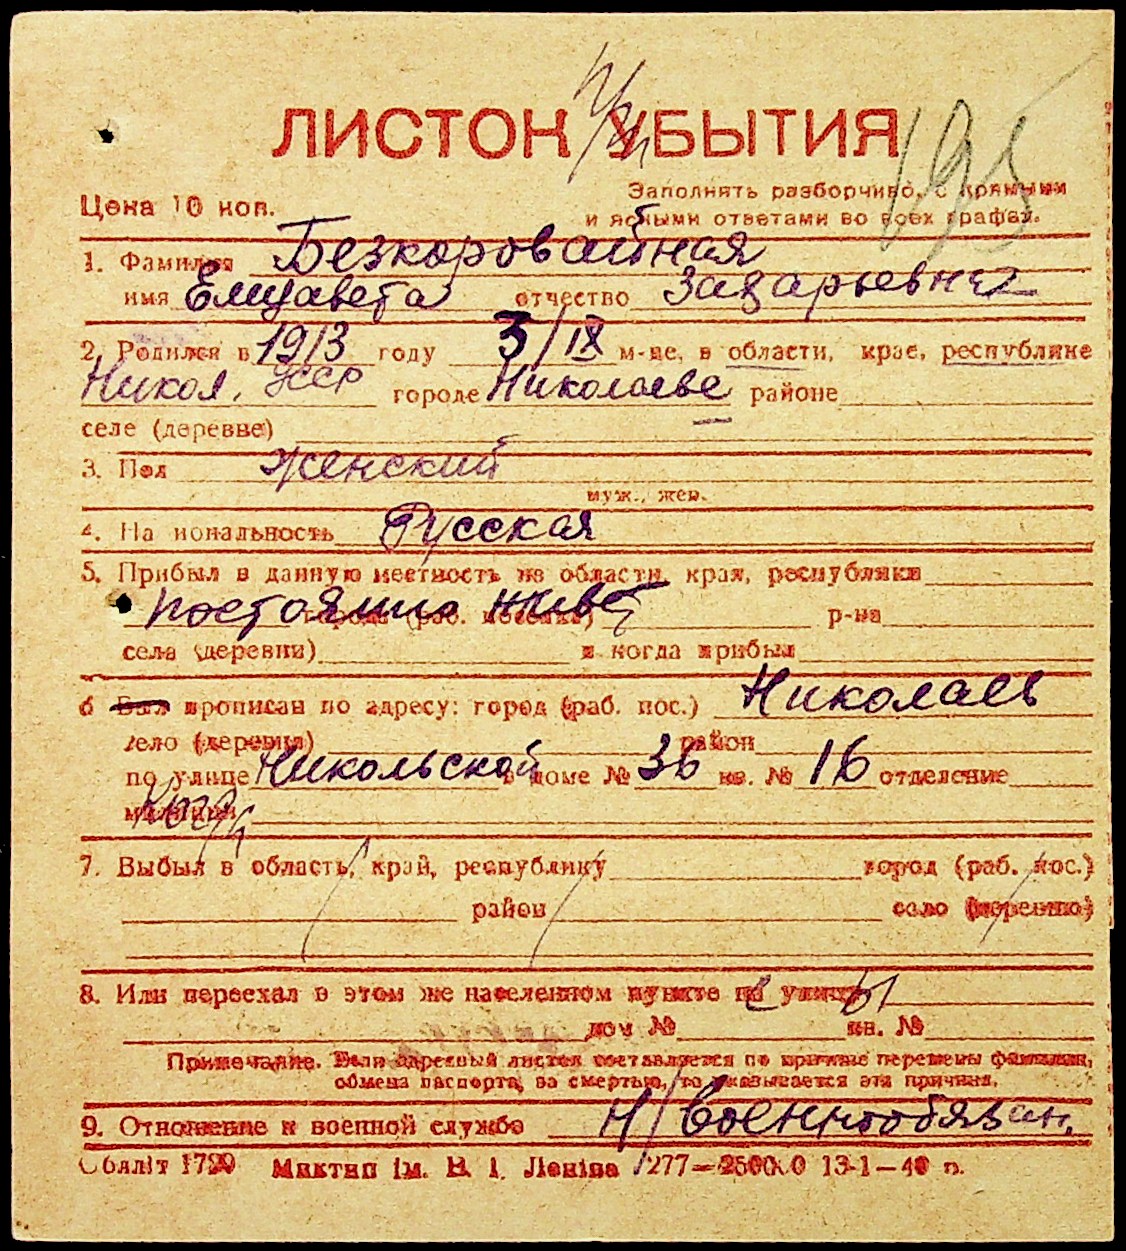 ЛИСТОК УБЫТИЯ
195
Цена 10 коп.
Заполнять разборчиво, с прямыми
и ясными ответами во всех графах.
1. Фамилия Безкоровайная
имя Елизавета отчество Захарьевна
2. Родился в 1913 году 3/IX м-це, в области, крае, республике
Никол. УССР городе Николаеве районе
селе (деревне)
3. Пол женский
муж., жен.
4. Национальность Русская
5. Прибыл в данную местность из области, края, республики
постоянно живет города (раб. поселка) р-на
села (деревни) и когда прибыл
6 Был прописан по адресу: город (раб. пос.) Николаев
село (деревня) район
по улице Никольской в доме № 36 кв. № 16 отделение
милиции
7. Выбыл в область, край, республику город (раб. пос.)
район село (деревню)
8. Или переехал в этом же населенном пункте на улицу
дом № кв. №
Примечание. Если адресный листок составляется по причине перемены фамилии,
обмена паспорта, за смертью, то указывается эта причина.
9. Отношение к военной службе Н/военнообязан.
Обліт 1790 Миктип ім. В. І. Леніна 277—25000 13-1—40 р.